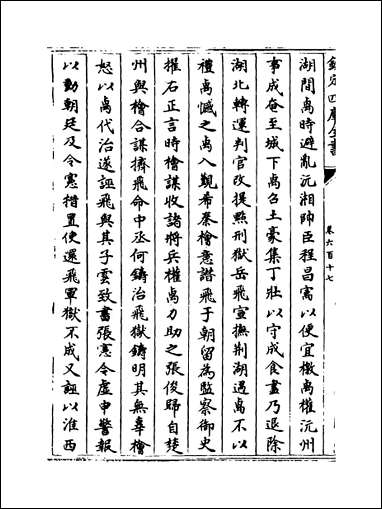 欽定四庫全書
卷六百十七
湖間禼時避亂沅湘帥臣程昌寓以便宜檄禼權沅州
事成奄至城下禼召土豪集丁壯以守成食盡乃退除
湖北轉運判官改提㸃刑獄岳飛宣撫荆湖遇禼不以
禮禼憾之禼入覲希秦檜意譖飛于朝留為監察御史
擢右正言時檜謀收諸將兵權禼力助之張俊歸自楚
州與檜合謀擠飛命中丞何鑄治飛獄鑄明其無辜檜
怒以禼代治遂誣飛與其子雲致書張憲令虚申警報
以動朝廷及令憲措置使還飛軍獄不成又誣以淮西